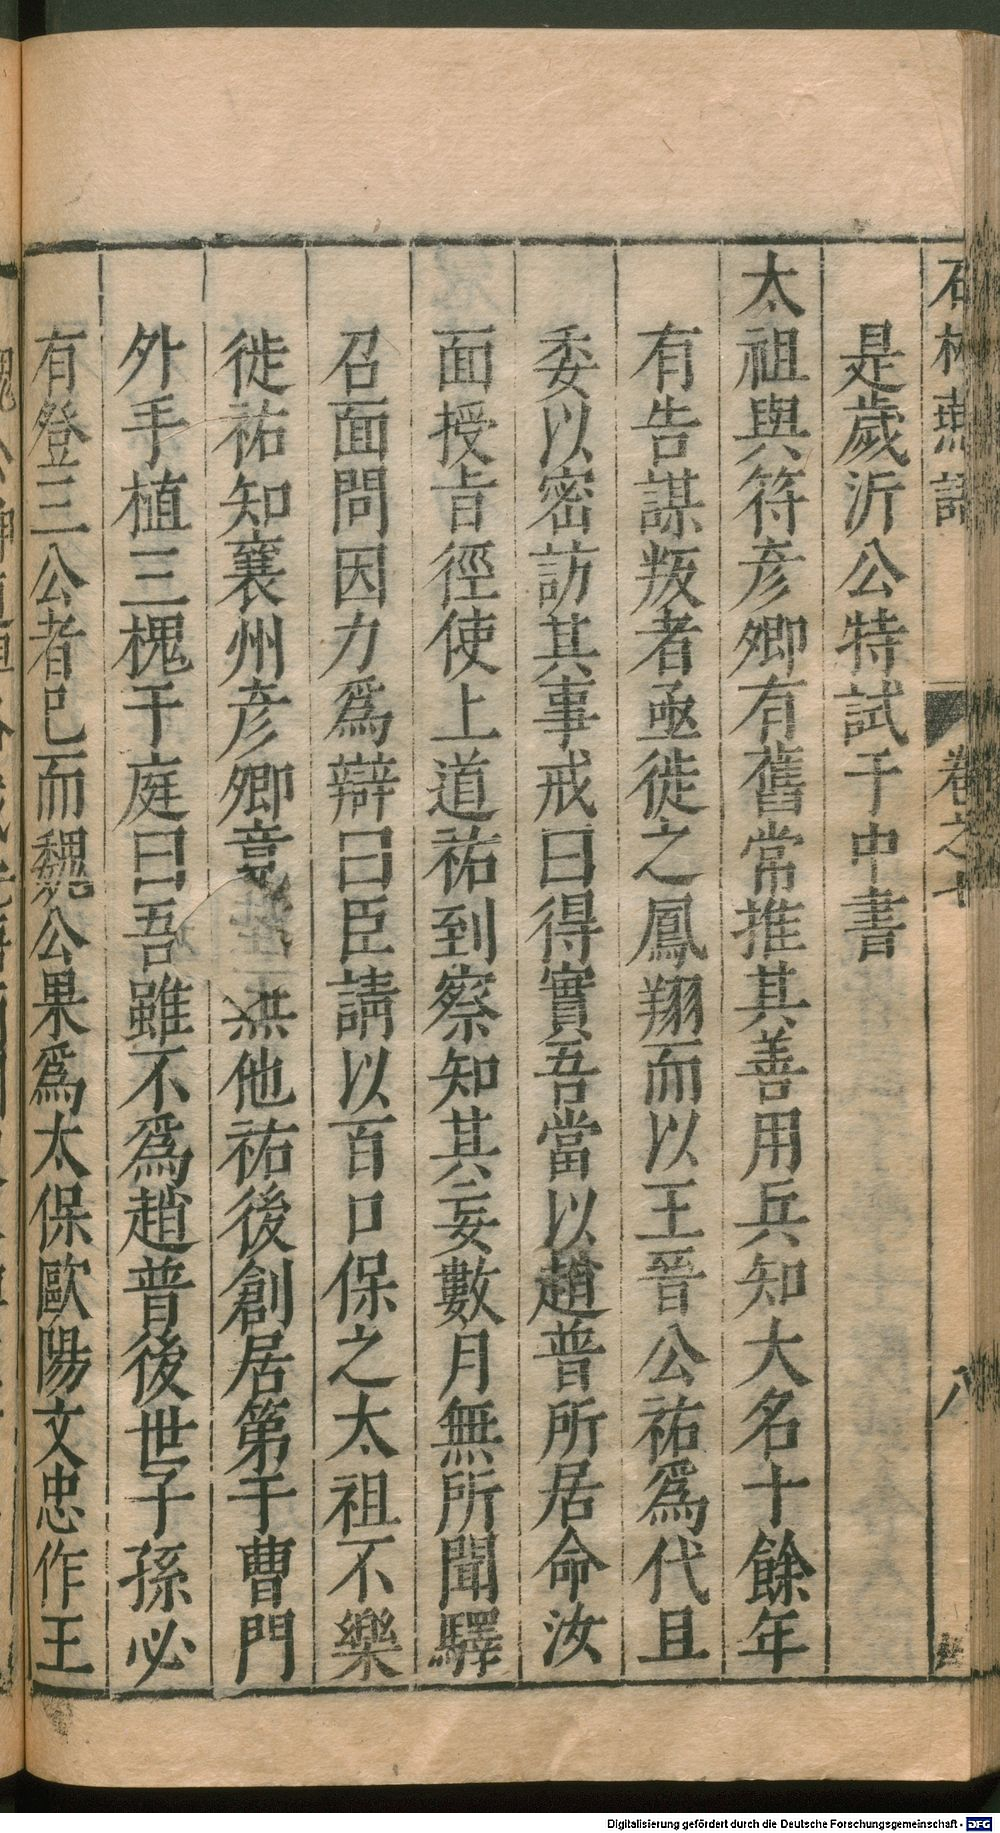 石林燕語 卷之七 八
是歲沂公特試于中書
太祖與符彥卿有舊常推其善用兵知大名十餘年
有告謀叛者亟徙之鳳翔而以王晉公祐爲代且
委以密訪其事戒曰得實吾當以趙普所居命汝
面授旨徑使上道祐到察知其妄數月無所聞驛
召面問因力爲辯曰臣請以百口保之太祖不樂
徙祐知襄州彥卿竟無他祐後創居第于曹門
外手植三槐于庭曰吾雖不爲趙普後世子孫必
有登三公者已而魏公果爲太保歐陽文忠作王
Digitalisierung gefördert durch die Deutsche Forschungsgemeinschaft - DFG